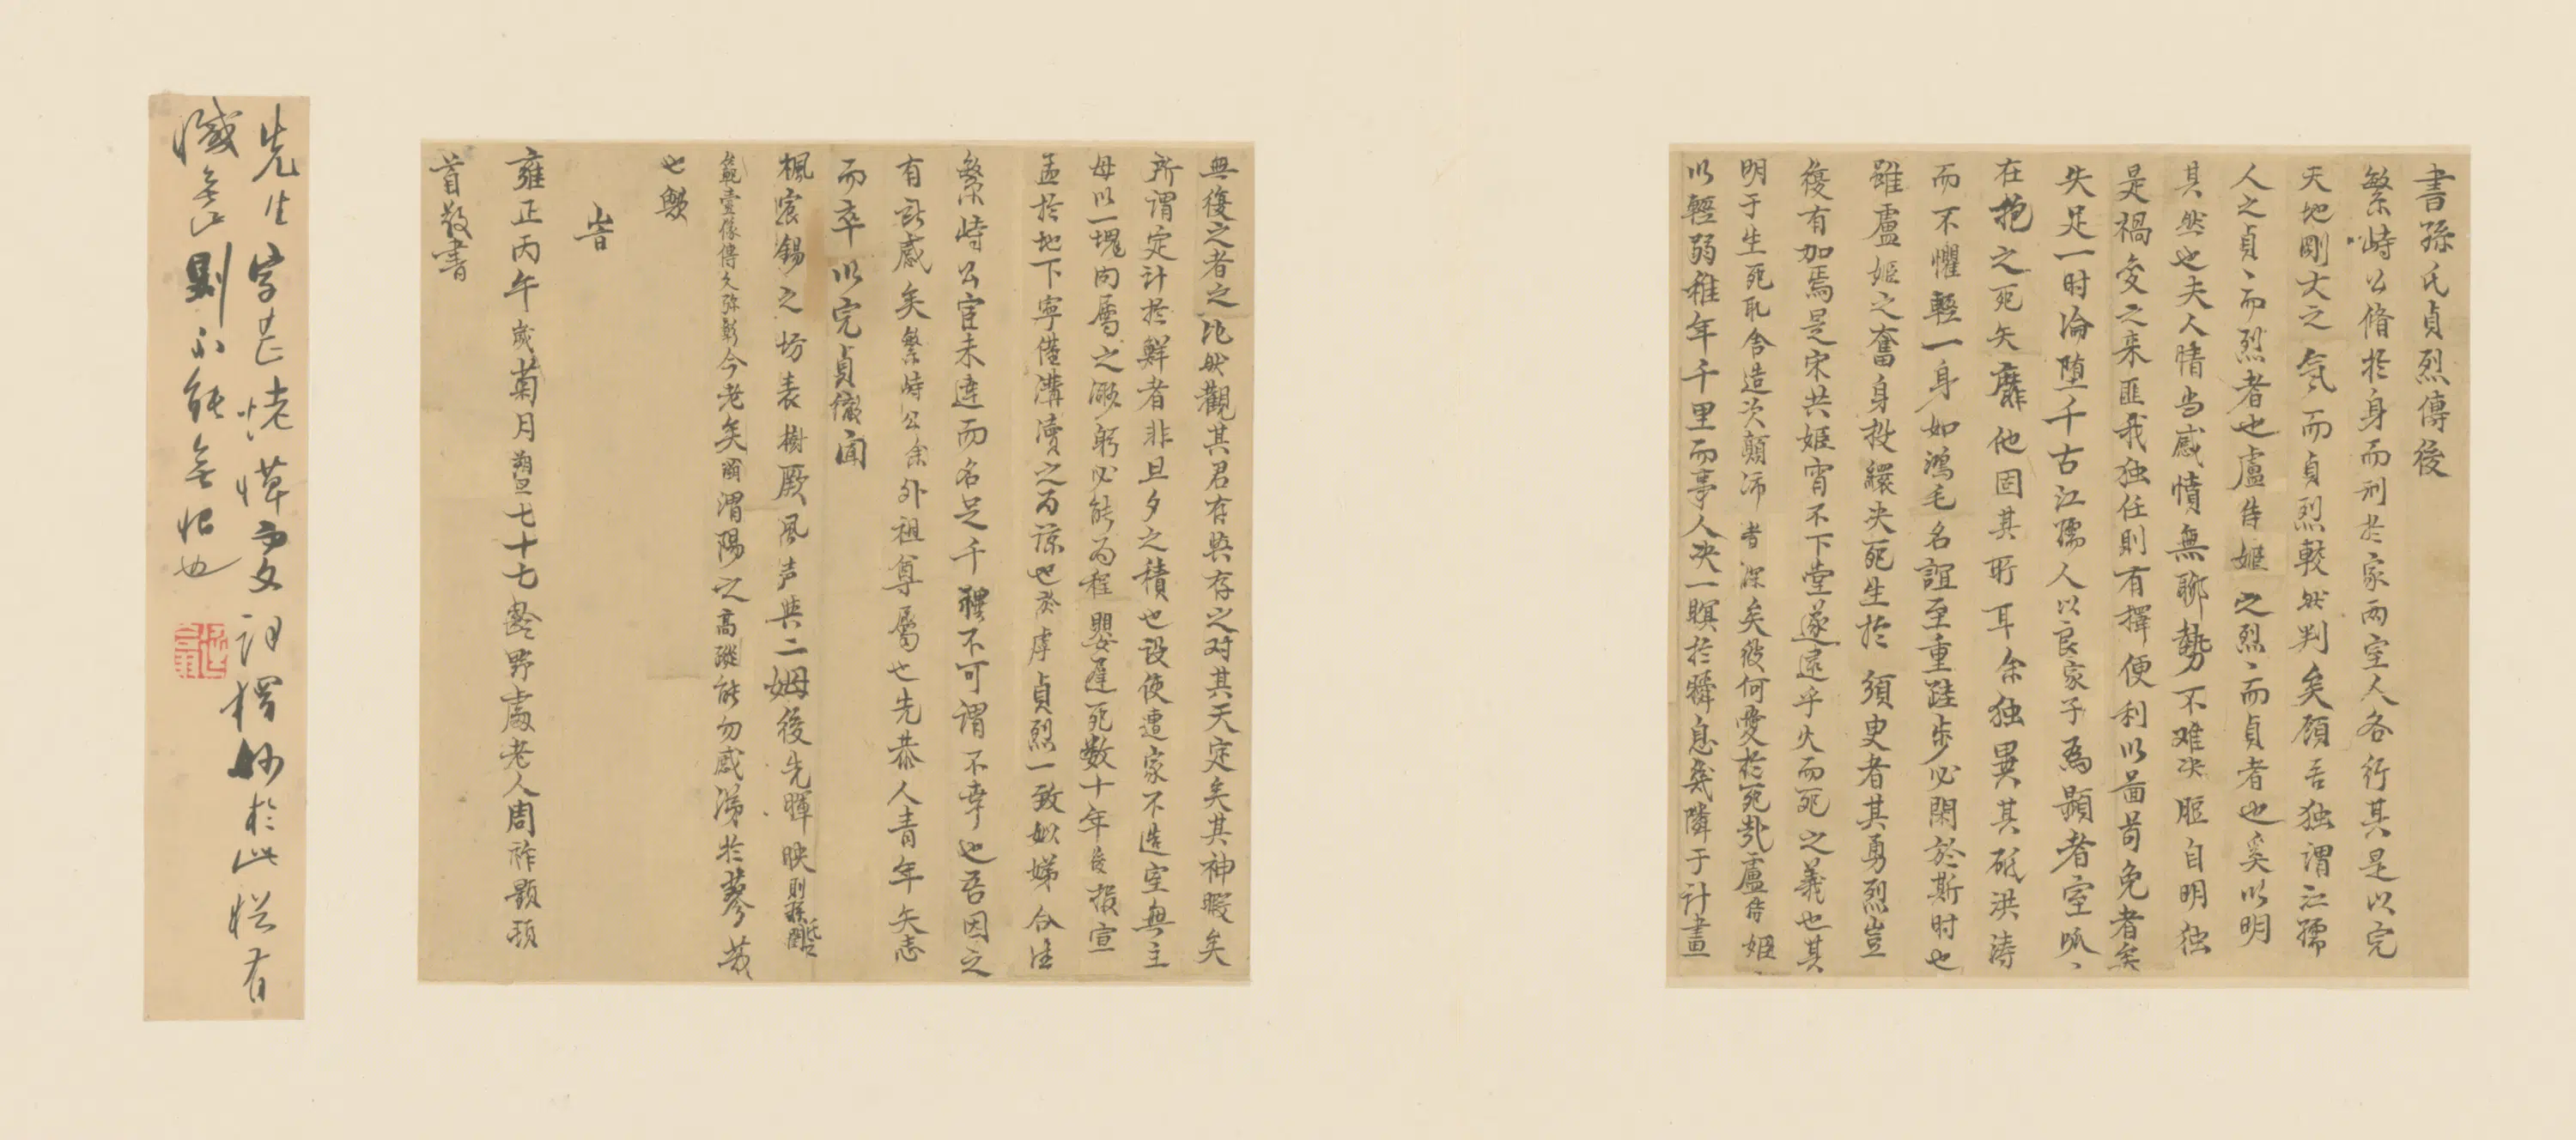 書孫氏貞烈傳後
繁峙公脩於身而刑於家兩室人各行其是以完
天地剛大之氣而貞烈較然判矣顧吾独謂江孺
人之貞〻而烈者也盧侍姬之烈〻而貞者也奚以明
其然也夫人情当感憤無聊勢不难决脰自明独
是禍变之来匪我独任則有擇便利以啚苟免者矣
失足一时淪堕千古江孺人以良家子爲顯者室呱〻
在抱之死矢靡他固其所耳余独異其砥洪涛
而不懼輕一身如鴻毛名誼至重跬步必閑於斯时也
雖盧姬之奮身投繯决死生於須臾者其勇烈豈
復有加焉是宋共姬宵不下堂遂逮乎火而死之義也其
明于生死取舍造次顛沛者深矣彼何愛於死哉盧侍姬〻
以輕弱稚年千里而事人决一瞑於瞬息幾隣于计畫
無復之者之比然觀其君存與存之对其天定矣其神暇矣
所谓定计於鮮者非旦夕之積也设使遭家不造室無主
母以一塊肉屬之漵躬必能为程嬰遲死数十年後报宣
孟於地下寧僅溝瀆之为谅也於虖貞烈一致姒娣合住
繁峙公官未達而名足千禩不可谓不幸也吾因之
有所感矣繁峙公余外祖尊屬也先恭人青年矢志
而卒以完貞徹聞
楓宸錫之坊表樹厥風声與二姆後先暉映則孫氏閨
範壹條傳久弥彰今老矣啚渭陽之高蹤能勿感涕於蓼莪
也歟
旹
雍正丙午歲菊月朔旦七十七齡野處老人周祚顯頓
首敬書
先生字老